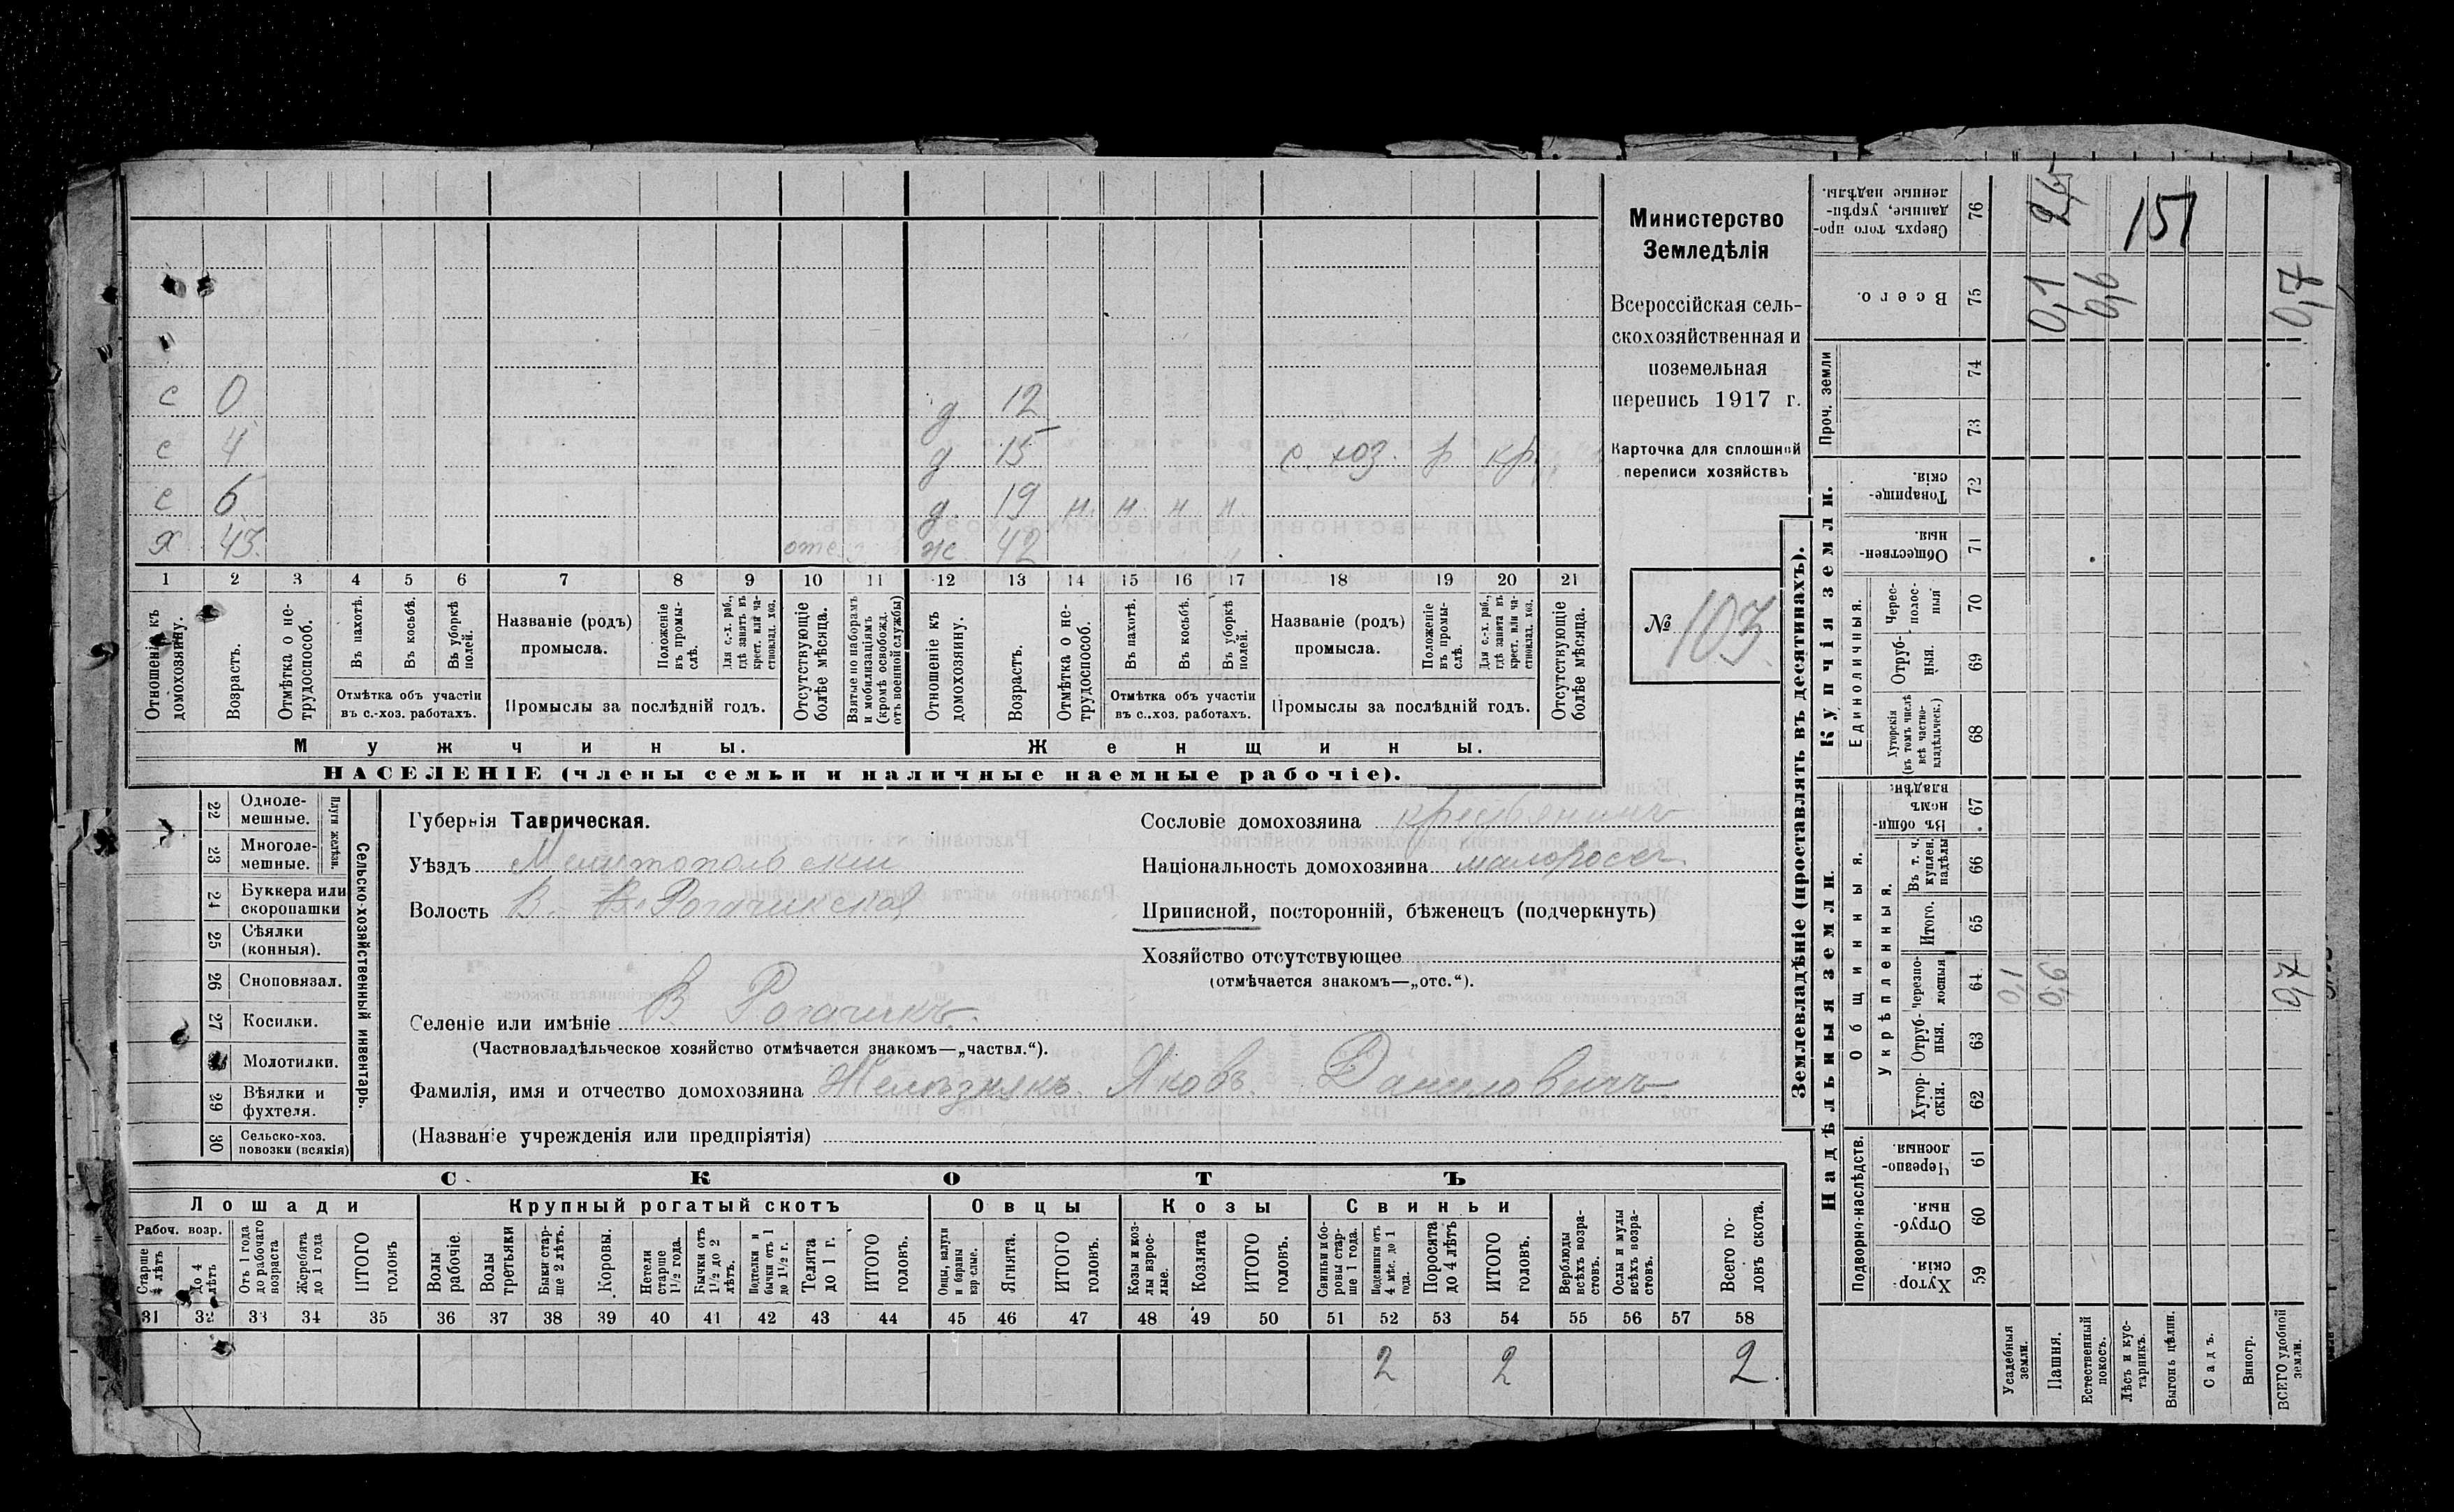 с 0 д 12
с 4 д 15 с. хоз. р кр.
с 6 д. 19 н. н. н н.
х 43. отс. ж. 42
1 2 3 4 5 6 7 8 9 10 11 12 13 14 15 16 17 18 19 20 21
Отношеніе къ домохозяину.
Возрастъ.
Отмѣтка о не-трудоспособ.
Въ пахотѣ.
Въ косьбѣ.
Въ уборкѣ полей.
Отмѣтка объ участіи
въ с.-хоз. работахъ.
Названіе (родъ)
промысла.
Положеніе въ промы-слѣ.
Для с.-х. раб., гдѣ занятъ въ крест. или ча-стновлад. хоз.
Промыслы за послѣдній годъ.
Отсутствующіе болѣе мѣсяца.
Взятые по наборамъ и мобилизаціямъ (кромѣ освобожд. отъ военной службы)
Отношеніе къ домохозяину.
Возрастъ.
Отмѣтка о не-трудоспособ.
Въ пахотѣ.
Въ косьбѣ.
Въ уборкѣ полей.
Отмѣтка объ участіи
въ с.-хоз. работахъ.
Названіе (родъ)
промысла.
Положеніе въ промы-слѣ.
Для с.-х. раб., гдѣ занята въ крест. или ча-стновлад. хоз.
Промыслы за послѣдній годъ.
Отсутствующіе болѣе мѣсяца.
Мужчины.
Женщины.
НАСЕЛЕНІЕ (члены семьи и наличные наемные рабочіе).
Министерство
Земледѣлія
Всероссійская сель-
скохозяйственная и
поземельная
перепись 1917 г.
Карточка для сплошной
переписи хозяйствъ
№ 103
22 Одноле-мешные.
23 Многоле-мешные.
Плуги желѣзн.
24 Буккера или скоропашки
25 Сѣялки (конныя).
26 Сноповязал.
27 Косилки.
Молотилки.
29 Вѣялки и фухтеля.
30 Сельско-хоз. повозки (всякія)
Сельско-хозяйственный инвентарь.
Губернія Таврическая.
Уѣздъ Мелитопольскій
Волость В. Рогачикская
Селеніе или имѣніе В Рогачикъ.
(Частновладѣльческое хозяйство отмѣчается знакомъ—„частвл.“).
Фамилія, имя и отчество домохозяина Желѣзнякъ Яковъ Даниловичъ
(Названіе учрежденія или предпріятія)
Сословіе домохозяина крестьянинъ
Національность домохозяина малороссъ
Приписной, посторонній, бѣженецъ (подчеркнуть)
Хозяйство отсутствующее
(отмѣчается знакомъ—„отс.“).
СКОТЪ
Лошади
Крупный рогатый скотъ
Овцы
Козы
Свиньи
Рабоч. возр.
Старше 4 лѣтъ
До 4 лѣтъ
Отъ 1 года до рабочаго возраста
Жеребята до 1 года
ИТОГО головъ
Волы рабочіе.
Волы третьяки
Быки стар-ше 2 лѣтъ.
Коровы.
Нетели старше 1½ года.
Бычки отъ 1½ до 2 лѣтъ.
Подтелки и бычки отъ 1 до 1½ г.
Телята до 1 г.
ИТОГО головъ.
Овцы, валухи и бараны взрослые.
Ягнята.
ИТОГО головъ.
Козы и коз-лы взрос-лые.
Козлята
ИТОГО головъ.
Свиньи и бо-ровы стар-ше 1 года.
Подсвинки отъ 4 мѣс. до 1 года.
Поросята до 4 лѣтъ
ИТОГО головъ.
Верблюды всѣхъ возра-стовъ.
Ослы и мулы всѣхъ возра-стовъ.
Всего го-ловъ скота.
31 32 33 34 35 36 37 38 39 40 41 42 43 44 45 46 47 48 49 50 51 52 53 54 55 56 57 58
2 2 2
Землевладѣніе (проставлять въ десятинахъ).
Сверхъ того про-данные, укрѣп-ленные надѣлы. 76
151
Всего. 75 0,1 0,6 0,7
Проч. земли 74
73
Купчія земли.
Товарище-скія. 72
Обществен-ныя. 71
Единоличныя.
Черес-полос-ныя 70
Отруб-ныя. 69
Хуторскія (въ томъ числѣ всѣ частно-владѣльческ.) 68
Надѣльныя земли.
Общинныя.
Въ общин-номъ владѣн. 67
Укрѣпленныя.
Въ т. ч. куплен. надѣлы 66
Итого. 65
Черезпо-лосныя 64 0,1 0,6 0,7
Отруб-ныя. 63
Хутор-скія. 62
Подворно-наслѣдств.
Черезпо-лосныя. 61
Отруб-ныя. 60
Хутор-скія. 59
Усадебныя земли.
Пашня.
Естественный покосъ.
Лѣсъ и кус-тарникъ.
Выгонъ цѣлин.
Садъ.
Виногр.
ВСЕГО удобной земли.